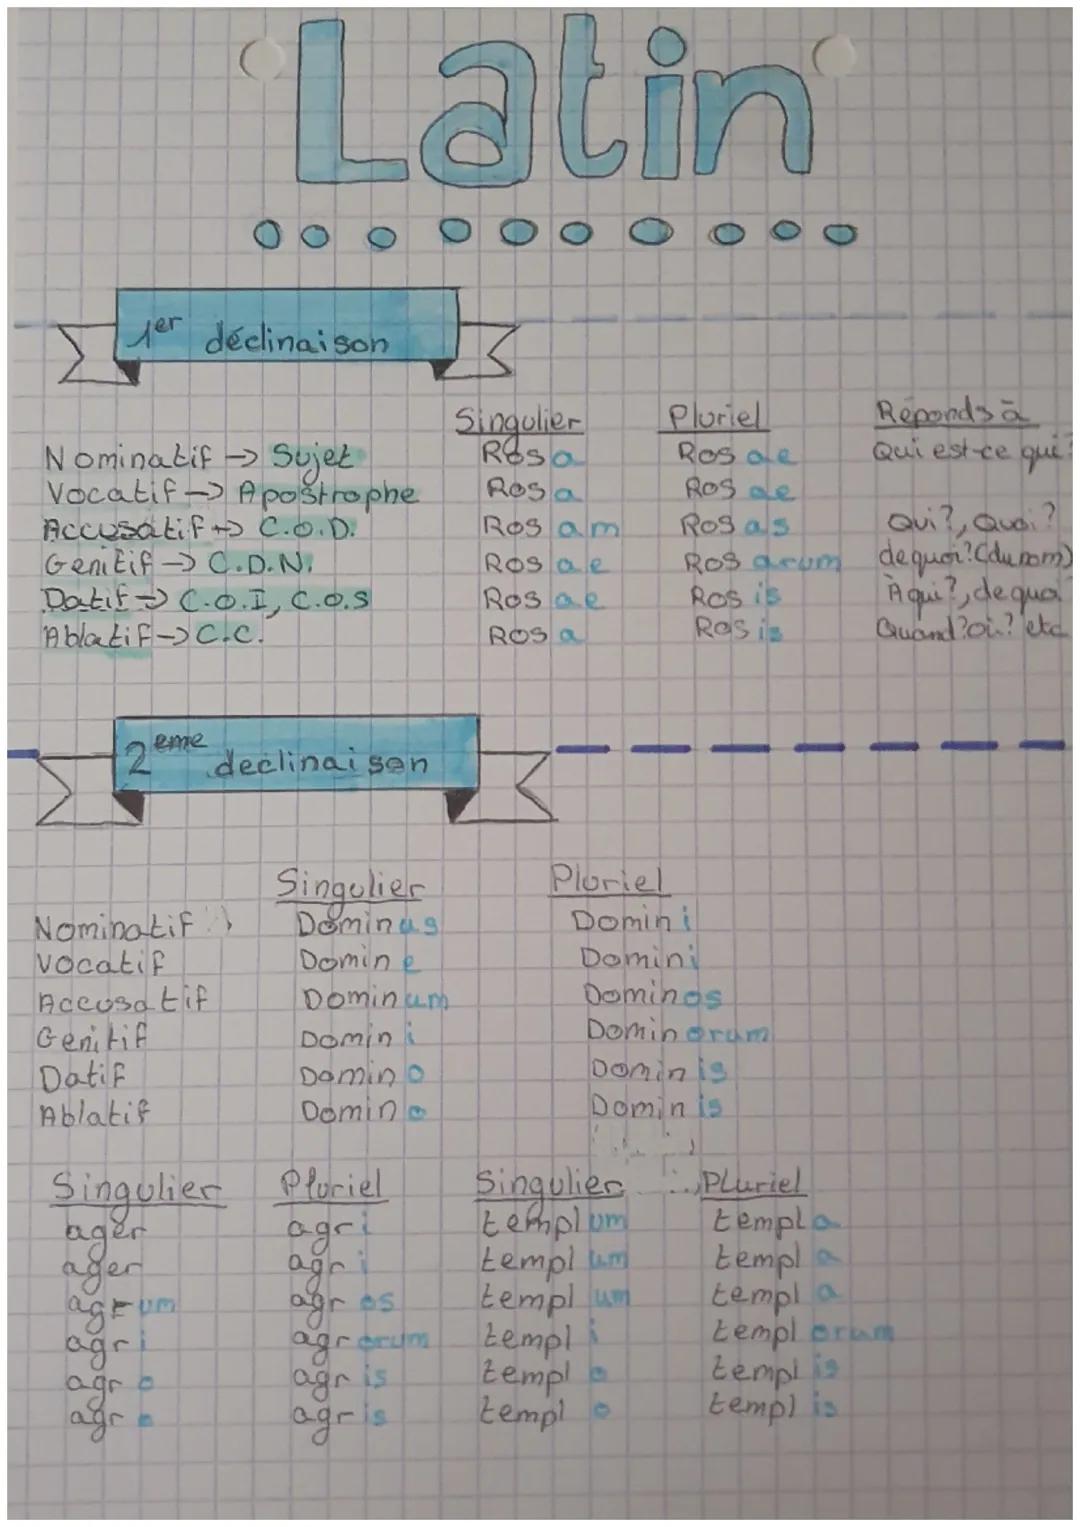 Latin
1er déclinaison
Singulier Pluriel Réponds à
Nominatif → Sujet Rosa Rosae Qui est-ce qui?
Vocatif → Apostrophe Rosa Rosae
Accusatif → C.O.D. Rosam Rosas Qui?, Quoi?
Genitif → C.D.N. Rosae Rosarum de quoi? (du nom)
Datif → C.O.I, C.O.S Rosae Rosis À qui?, de quoi
Ablatif → C.C. Rosa Rosis Quand? où? etc
2eme declinaison
Singulier Pluriel
Nominatif Dominus Domini
Vocatif Domine Domini
Accusatif Dominum Dominos
Genitif Domini Dominorum
Datif Domino Dominis
Ablatif Domino Dominis
Singulier Pluriel Singulier PLuriel
ager agri templum templa
ager agri templum templa
agrum agros templum templa
agri agrorum templi templorum
agro agris templo templis
agro agris templo templis